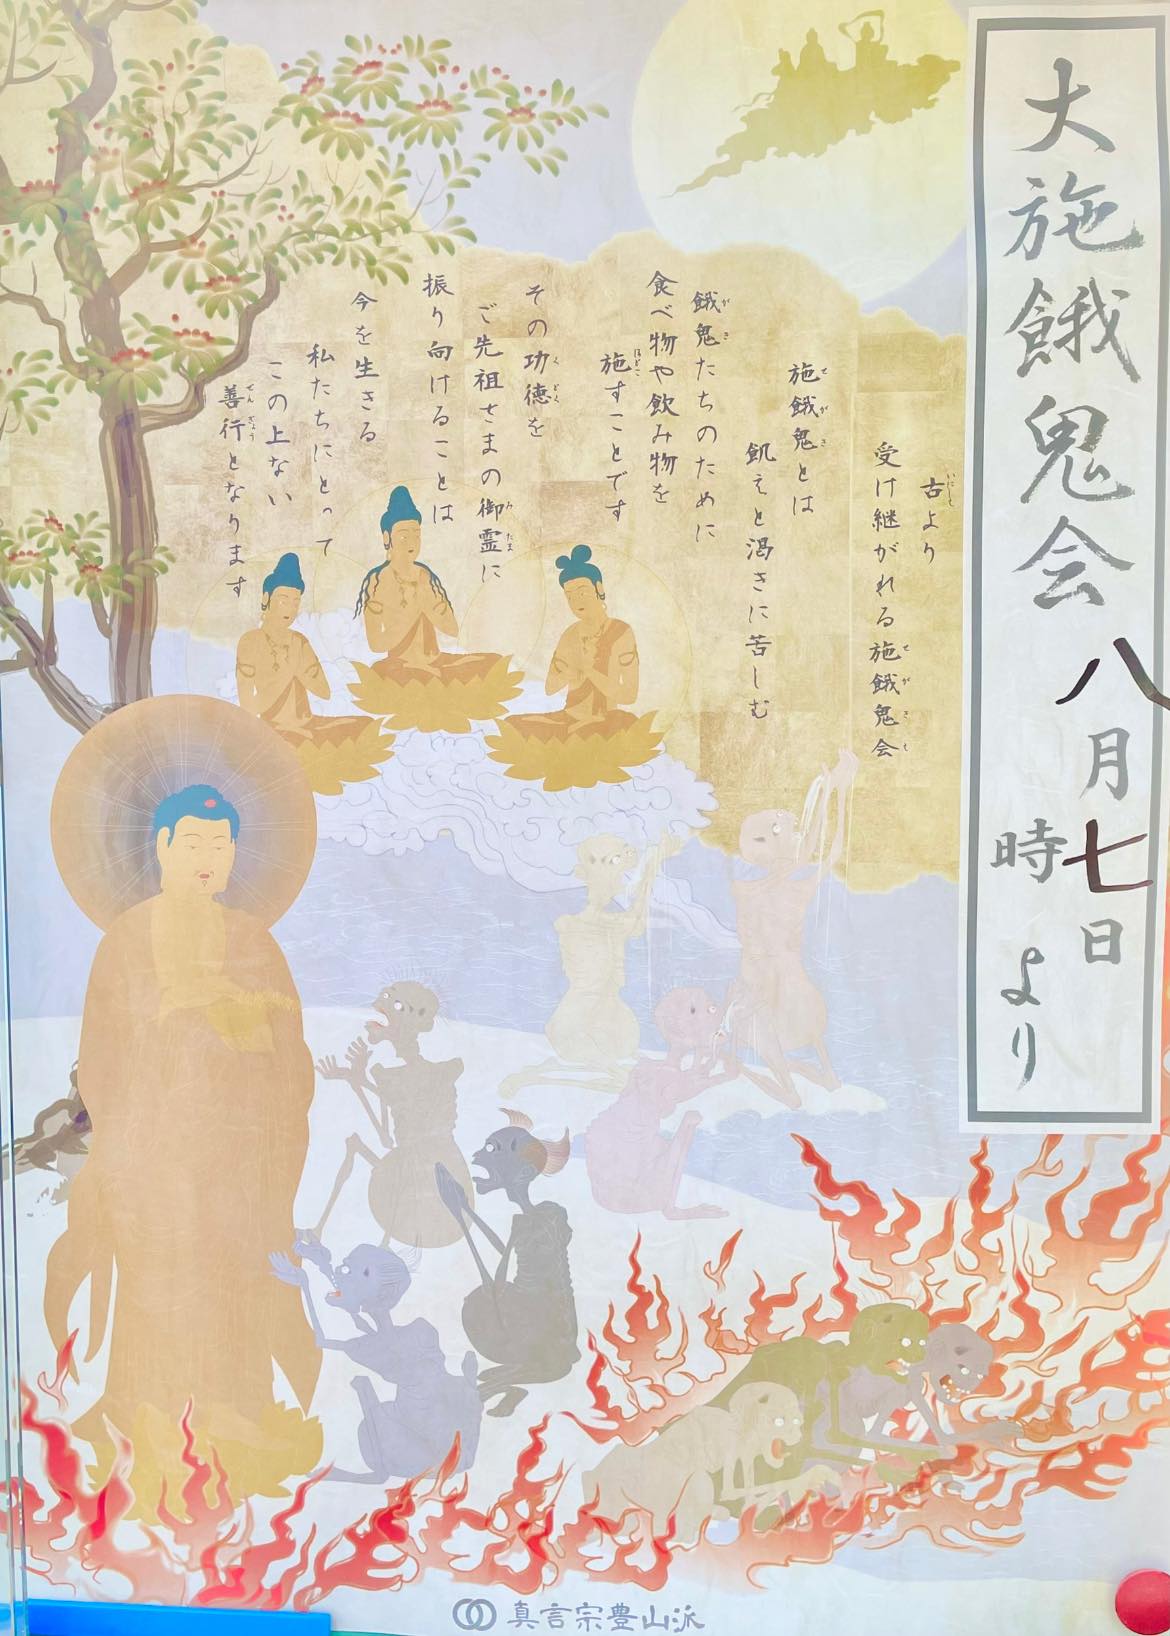 大施餓鬼会
八月七日
時より
古より
受け継がれる施餓鬼会
施餓鬼とは
飢えと渇きに苦しむ
餓鬼たちのために
食べ物や飲み物を
施すことです
その功徳を
ご先祖さまの御霊に
振り向けることは
今を生きる
私たちにとって
この上ない
善行となります
真言宗豊山派